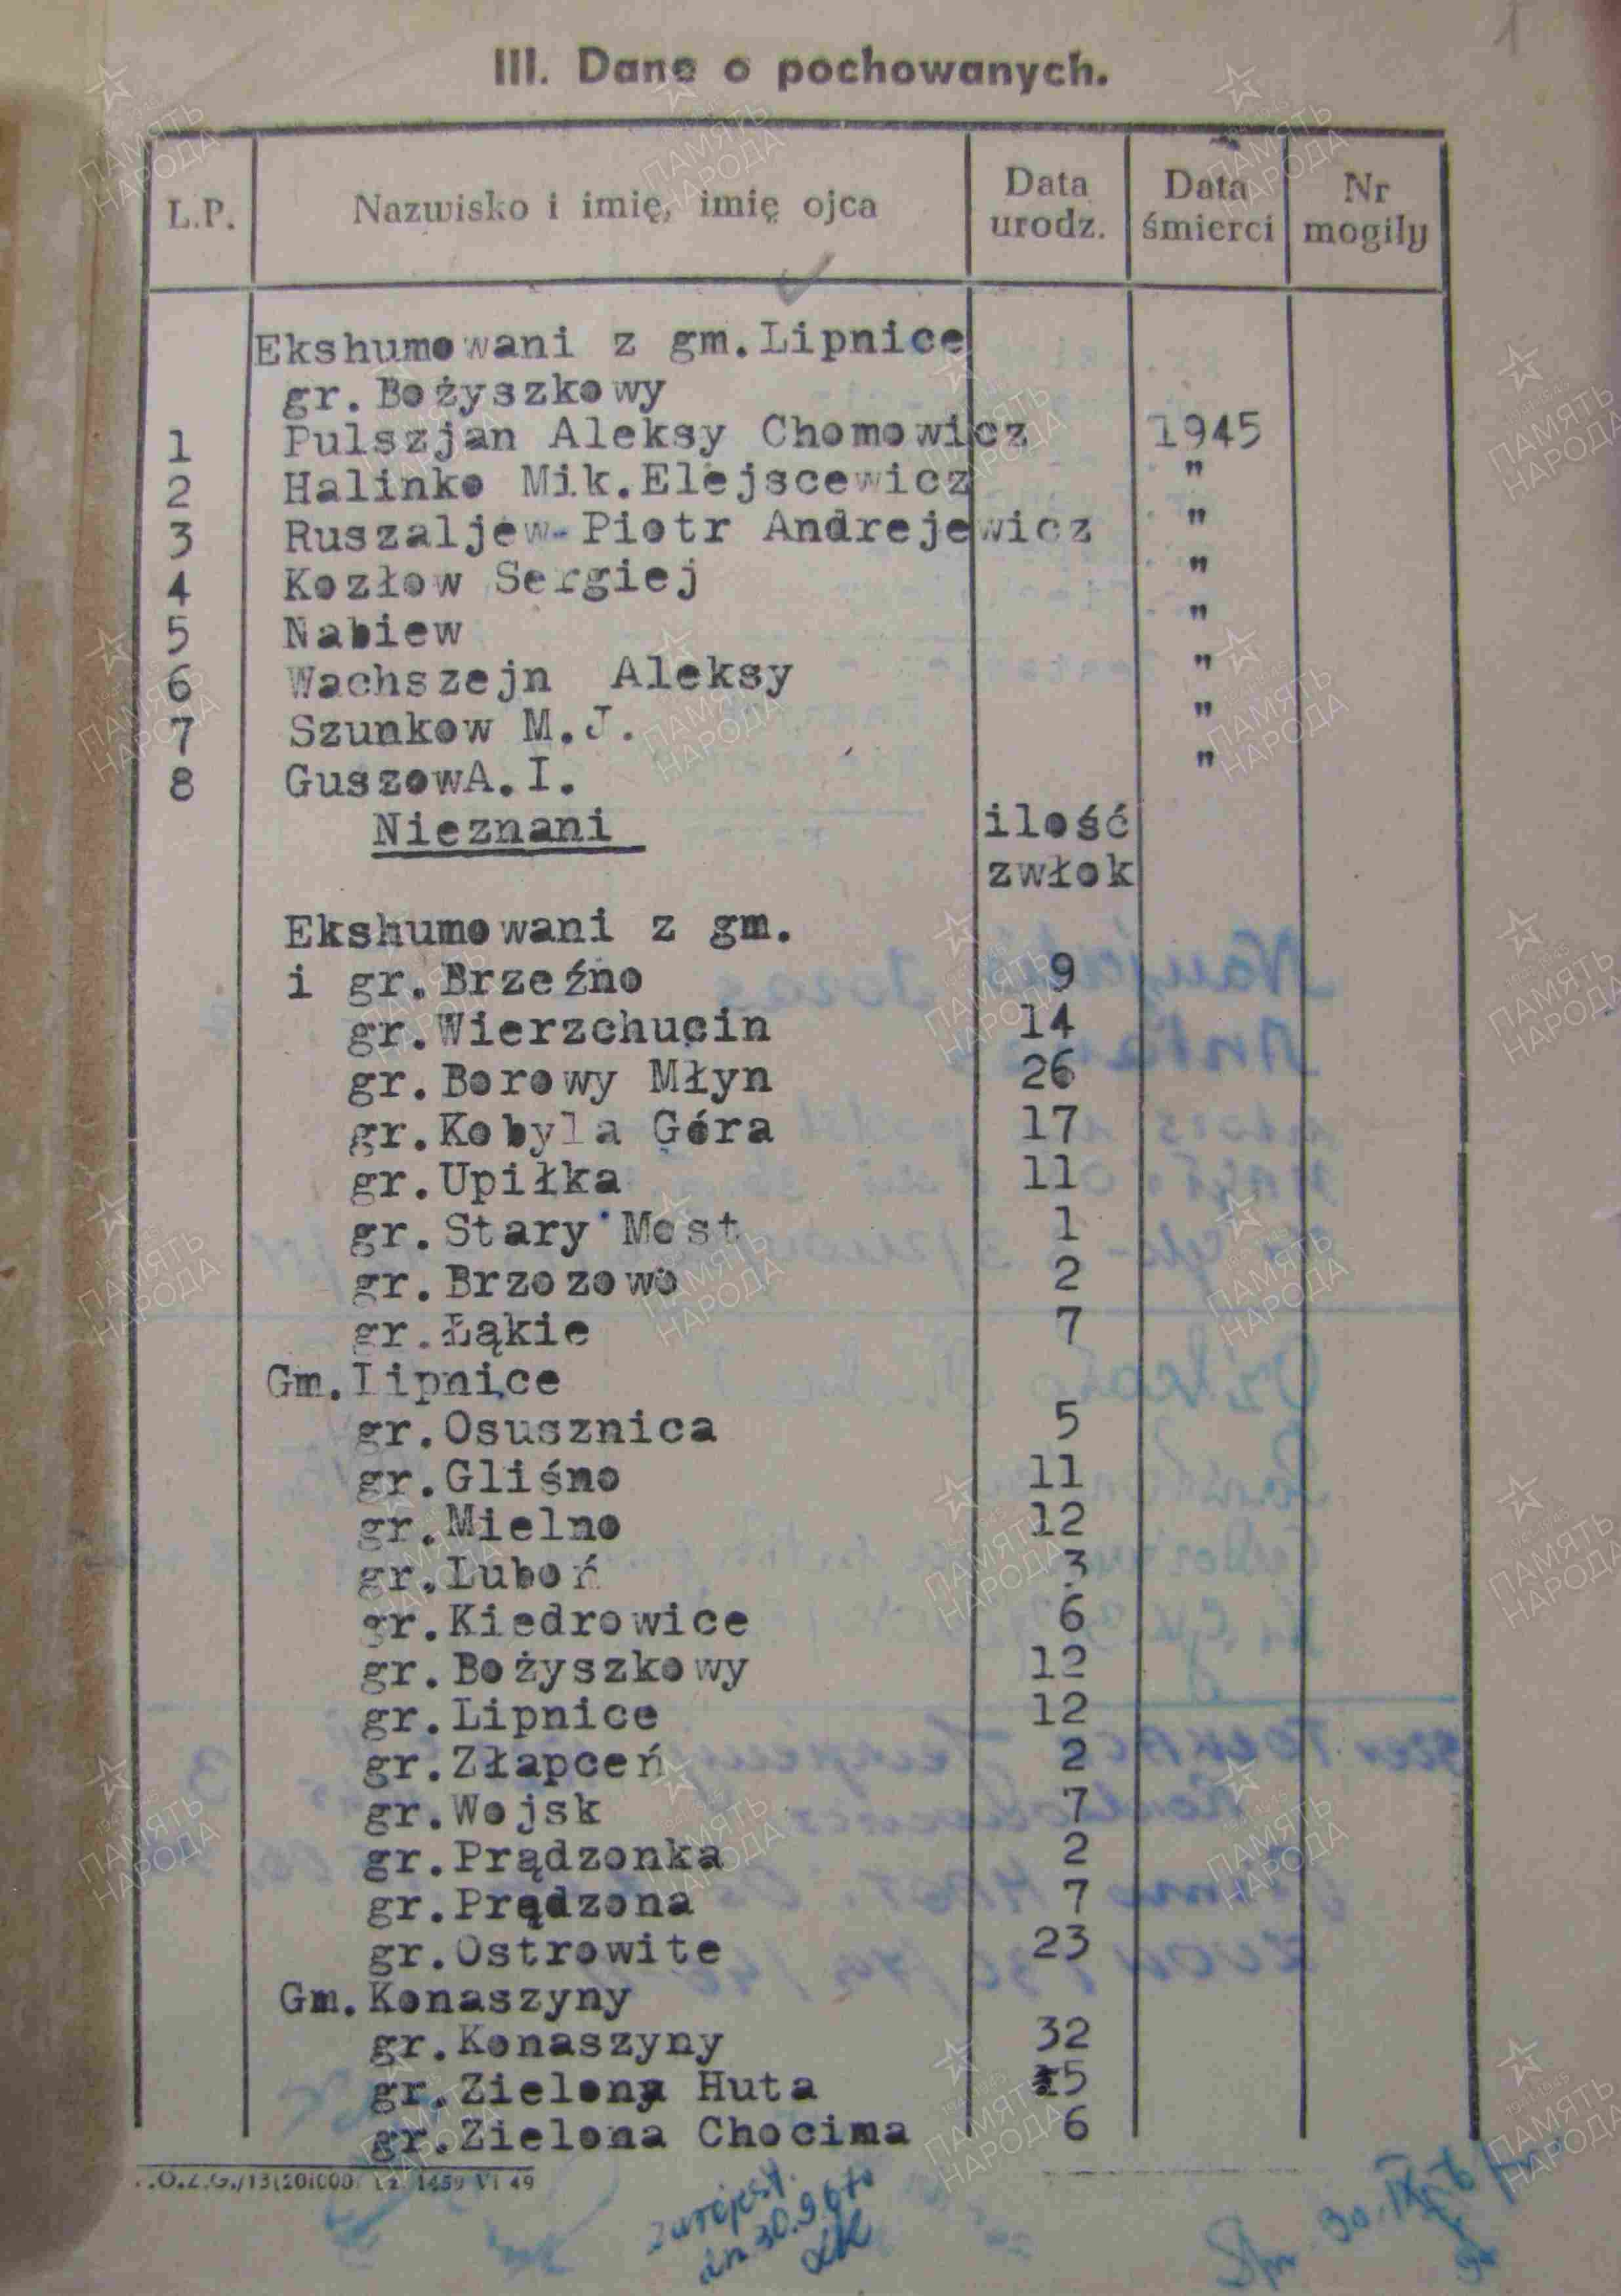 1
III. Dane o pochowanych.
L.P. Nazwisko i imię, imię ojca Data urodz. Data śmierci Nr mogiły
Ekshumowani z gm.Lipnice
gr.Bożyszkowy
1 Pulszjan Aleksy Chomowicz 1945
2 Halinko Mik.Elejscewicz "
3 Ruszaljew-Piotr Andrejewicz "
4 Kozłow Sergiej "
5 Nabiew "
6 Wachszejn Aleksy "
7 Szunkow M.J. "
8 GuszowA.I. "
Nieznani ilość
zwłok
Ekshumowani z gm.
i gr.Brzeźno 9
gr.Wierzchucin 14
gr.Borowy Młyn 26
gr.Kobyla Góra 17
gr.Upiłka 11
gr.Stary Most 1
gr.Brzozowo 2
gr.Łąkie 7
Gm.Lipnice
gr.Osusznica 5
gr.Gliśno 11
gr.Mielno 12
gr.Luboń 3
gr.Kiedrowice 6
gr.Bożyszkowy 12
gr.Lipnice 12
gr.Złapceń 2
gr.Wojsk 7
gr.Prądzonka 2
gr.Prądzona 7
gr.Ostrowite 23
Gm.Konaszyny
gr.Konaszyny 32
gr.Zielona Huta 15
gr.Zielona Chocima 6
.O.Z.G./13(20)000 1459 VI 49
zarejest.
dn 30.9.67r
ПАМЯТЬ НАРОДА
1941-1945